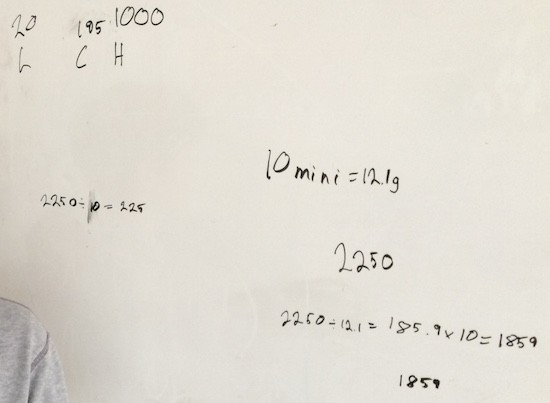 20 195 1000
L C H
10 mini = 12.1g
2250 ÷ 10 = 225
2250
2250 ÷ 12.1 = 185.9 x 10 = 1859
1859